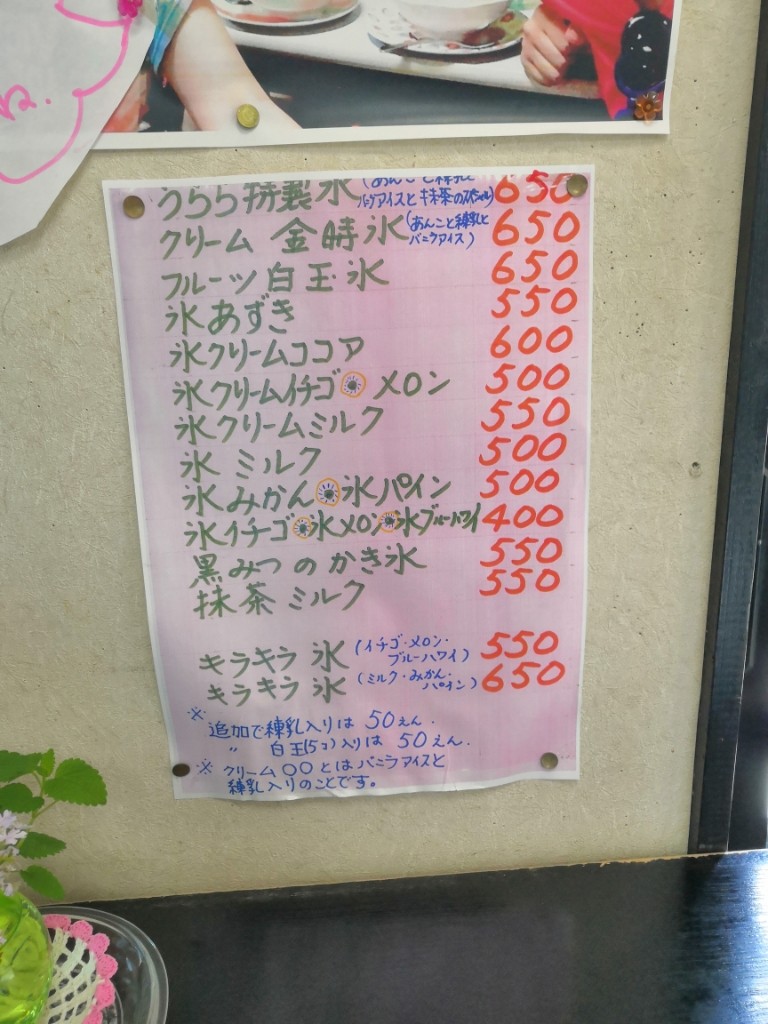 ね.
うらら特製氷 (あんこと練乳と 650
バニラアイスと抹茶のスペシャル)
クリーム 金時氷 (あんこと練乳と 650
バニラアイス)
フルーツ白玉氷 650
氷あずき 550
氷クリームココア 600
氷クリームイチゴ メロン 500
氷クリームミルク 550
氷 ミルク 500
氷みかん 氷パイン 500
氷イチゴ 氷メロン 氷ブルーハワイ 400
黒みつのかき氷 550
抹茶ミルク 550
キラキラ氷 (イチゴ・メロン・ 550
ブルーハワイ)
キラキラ氷 (ミルク・みかん・ 650
パイン)
※
追加で練乳入りは 50えん.
〃 白玉(5コ)入りは 50えん.
※ クリーム〇〇とはバニラアイスと
練乳入りのことです。